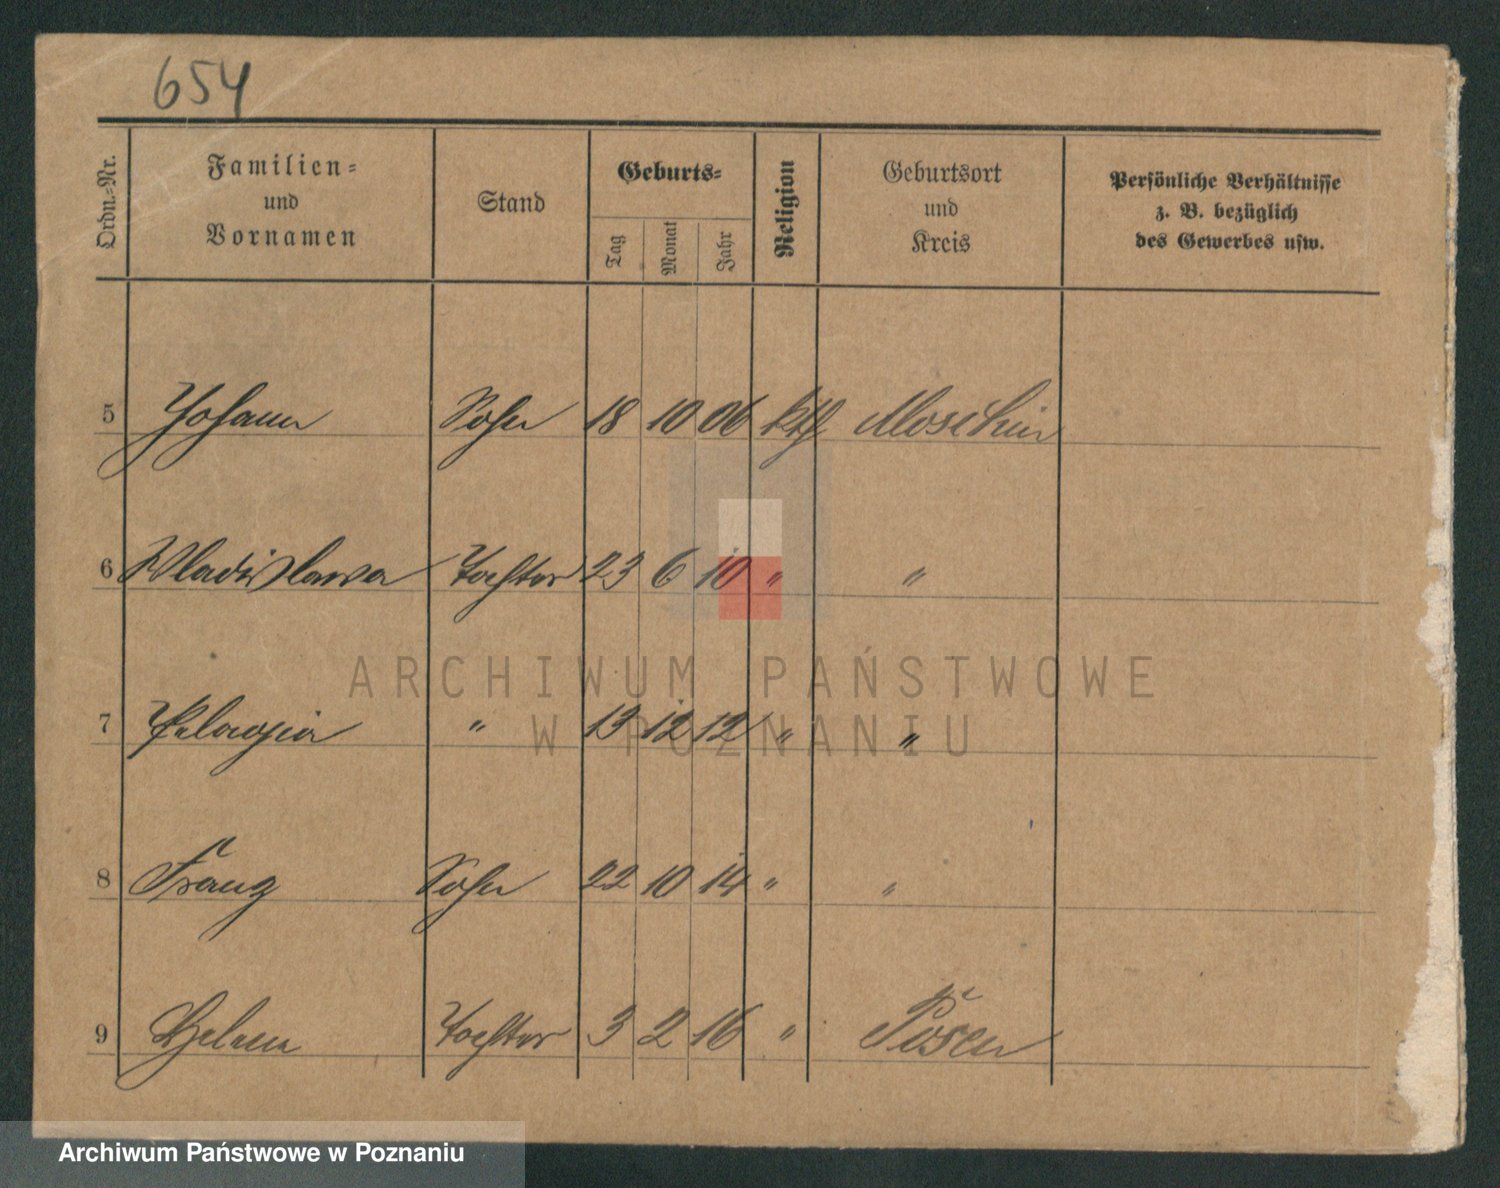 654
Ordn.-Nr. Familien- und Vornamen Stand Geburts- Tag Monat Jahr Religion Geburtsort und Kreis Persönliche Verhältnisse z. B. bezüglich des Gewerbes usw.
5 Johann Sohn 18 10 06 kth Moschin
6 Wladislawa Tochter 23 6 10 " "
ARCHIWUM PAŃSTWOWE
W POZNANIU
7 Pelagia " 13 12 12 " "
8 Franz Sohn 22 10 14 " "
9 Helena Tochter 3 2 16 " Posen
Archiwum Państwowe w Poznaniu